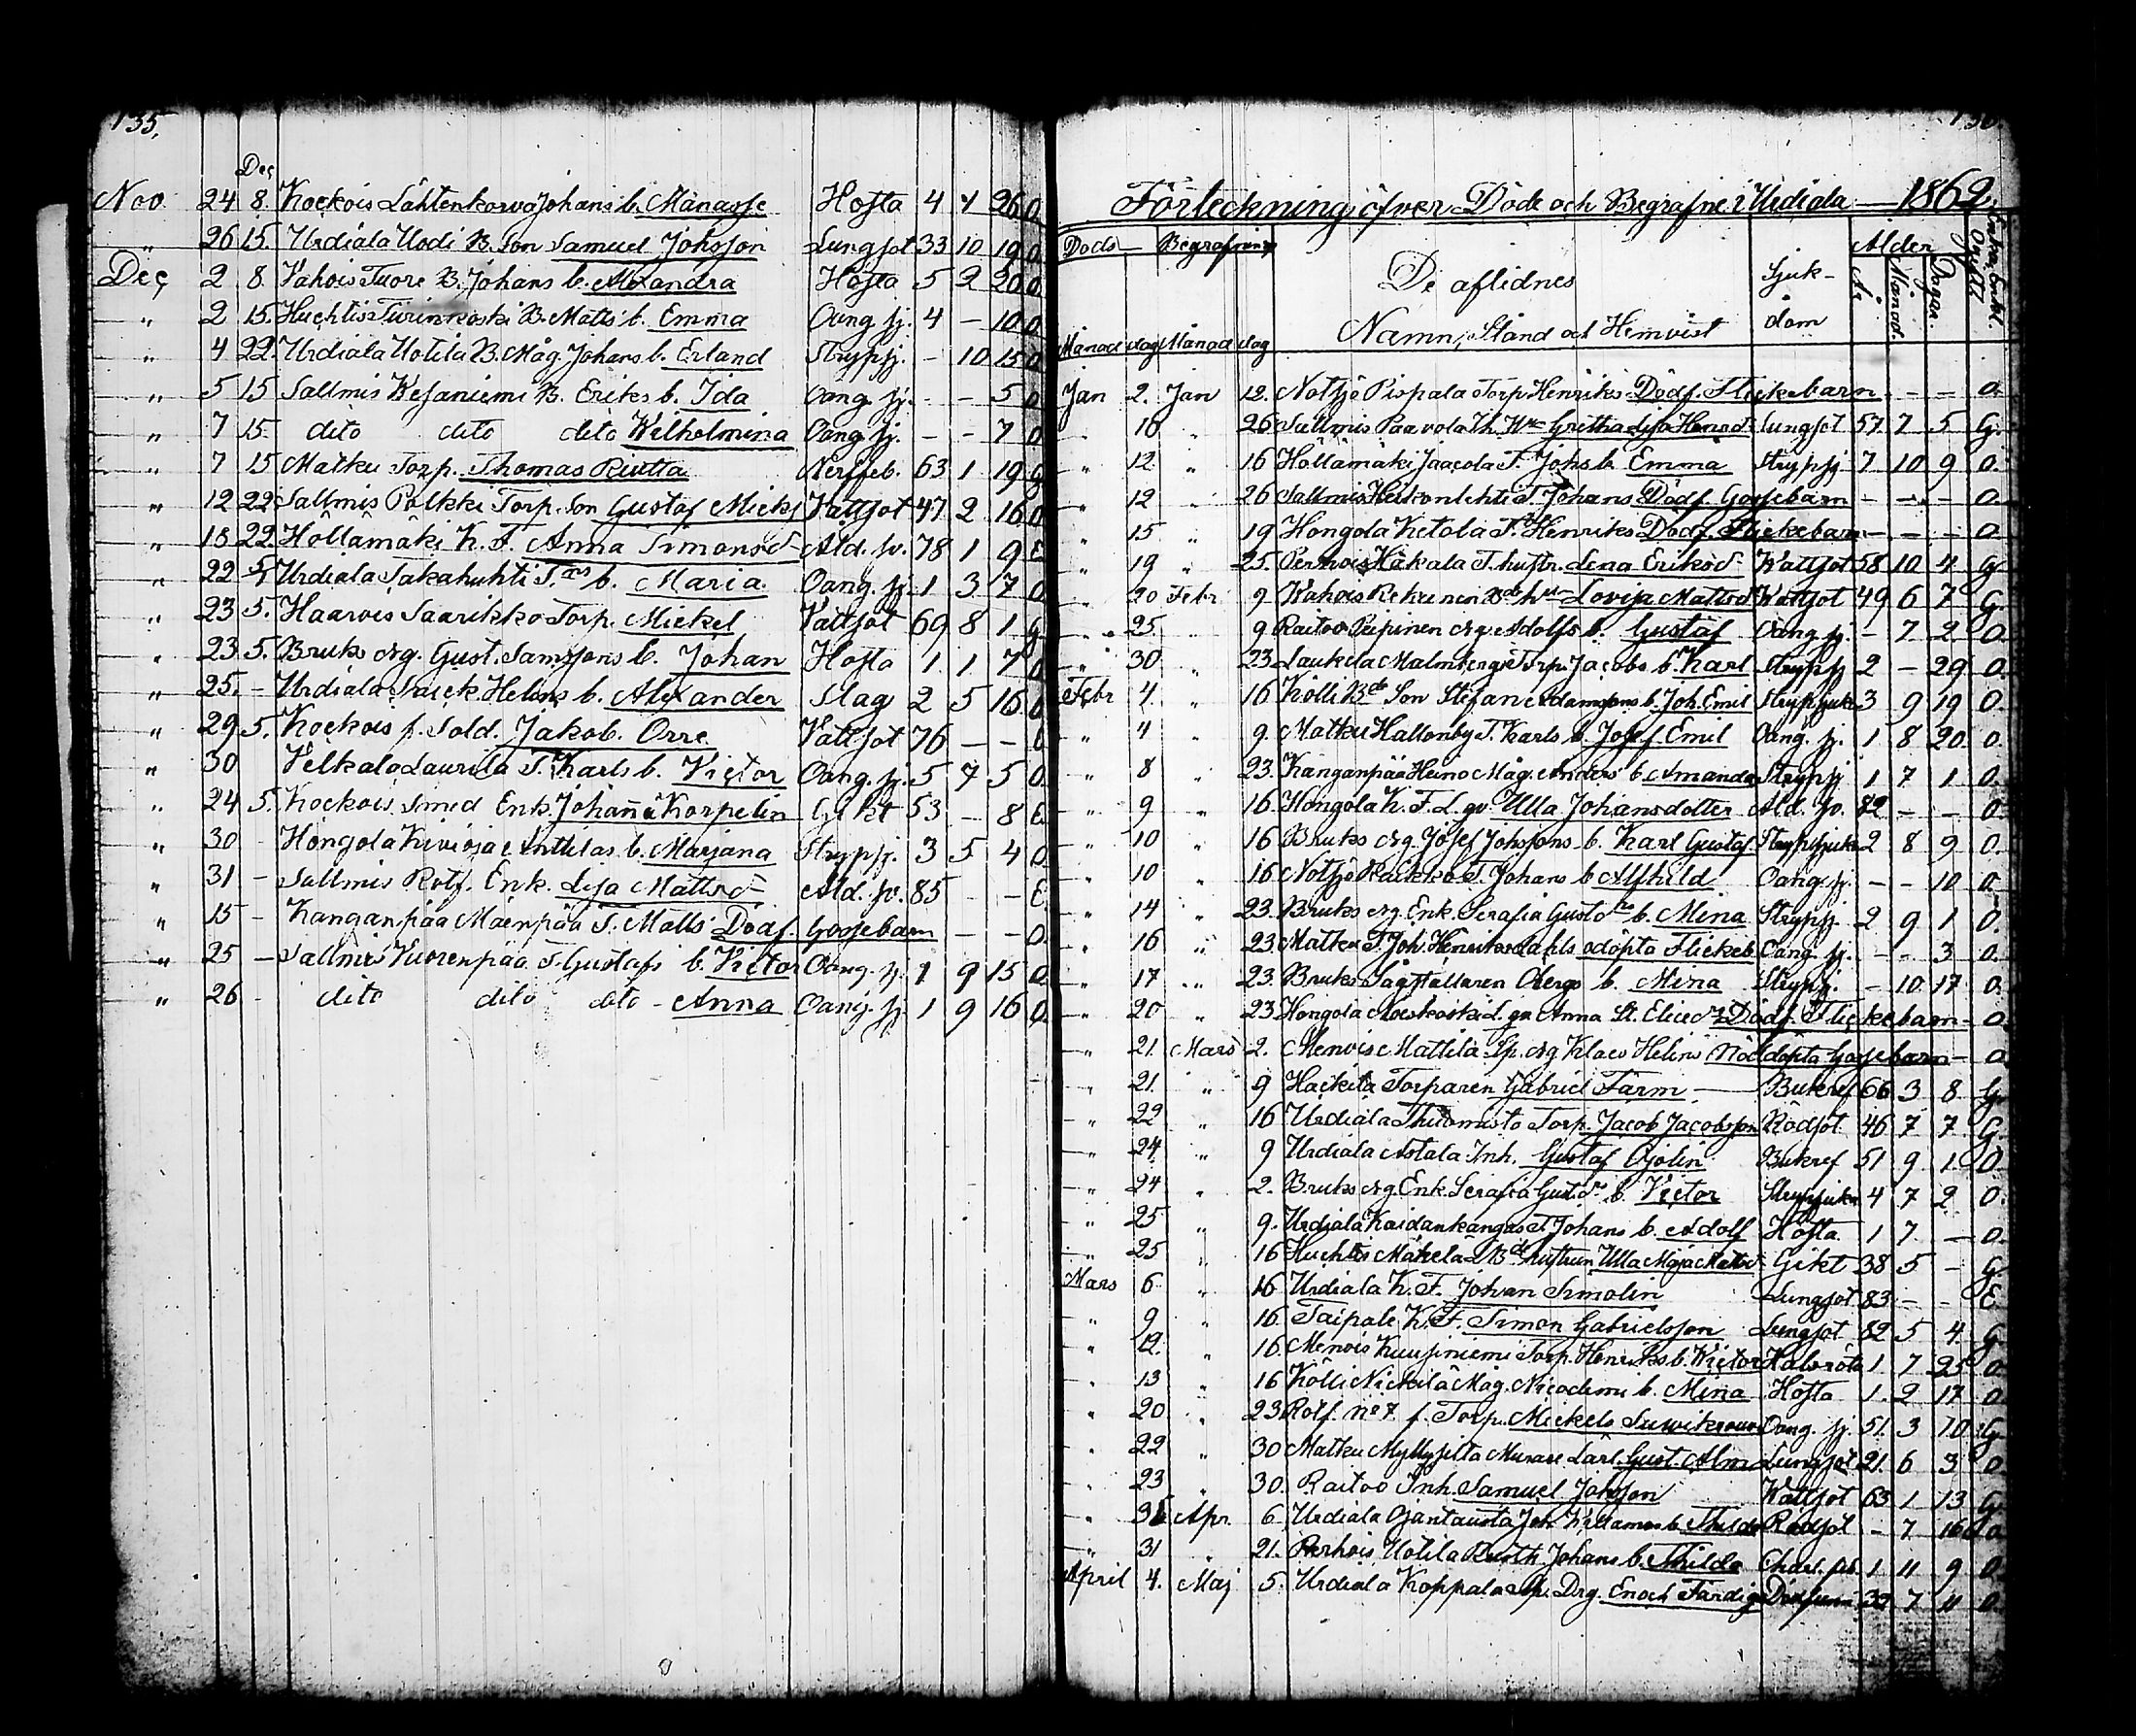 135,
Dec
Nov 24 8. Kockois Lähtenkorva Johans b. Manasse Hosta 4 1 26 O
" 26 15. Urdiala Uodi B. Son Samuel Johsson Lungsot 33 10 19 O
Dec 2 8. Vahois Tuore B. Johans b. Alexandra Hosta 5 2 20 O
" 2 15. Huchtis Turinkoski B. Matts b. Emma Oang sj. 4 — 10 O
" 4 22. Urdiala Uotila B. Måg. Johans b. Erland Strypsj. - 10 15 O
" 5 15 Sallmis Wesaniemi B. Eriks b. Ida Oang. sj. - - 5 O
" 7 15 dito dito dito Wilhelmina Oang. sj. - - 7 O
" 7 15 Matku Torp. Thomas Riutta Nerffeb. 63 1 19 G
" 12 22 Sallmis Palkki Torp. Son Gustaf Micks Vattsot 47 2 16 O
" 18 22. Hôllämäki K. F. Anna Simonsd Ald. sv. 78 1 9 E
" 22 5. Urdiala Takahuhti T. b. Maria. Oang. sj. 1 3 7 O
" 23 5. Haarois Saarikko Torp. Mickel Vattsot 69 8 1 G
" 23. 5. Bruks drg. Gust. Samssons b. Johan Hosta 1. 1 7 O
" 25. - Urdiala Helins b. Alexander Slag 2 5 16 O
" 29 5. Kockois f. Sold. Jakob. Orre Vattsot 76 — —
" 30 Velkala Laurila T. Karls b. Victor Oang. sj. 5 7 5 O
" 24 5. Kockois Smed Enk. Johanna Korpelin Gikt 53 — 8 E.
" 30 - Hongola Kivioja Anttilas b. Marjana Strypsj. 3 5 4 O
" 31 - Sallmis Rotf. Enk. Lisa Mattsd Ald. sv. 85 - - E.
" 15 - Kanganpää Mäenpää T. Matts Dödf. Gossebarn — — O
" 25 — Sallmis Vuorenpää T. Gustafs b. Victor Oang. sj. 1 9 15 O
" 26 - dito dito dito - Anna Oang. sj. 1 9 16 O
Förteckning öfver Döde och Begrafne i Urdiala — 1862.
Döds— Begrafnings De aflidnes Sjuk- Ålder
Namn, Stånd och Hemvist dom År Månad. Dagar. Ogift
Månad dag Månad dag
Jan 2. Jan 12. Notsjö Pispala Torp Henriks Dödf. Flickebarn - - — O.
" 10 " 26 Sallmis Paavola Th. Hru Gretha Lisa Henrsd Lungsot 57. 7 5 G.
" 12 " 16 Hôllämäki Jaacola T. Johs b. Emma Strypsj 7 10 9 O.
" 12 " 26 Sallmis Heikonlehti T. Johans Dödf. Gossebarn — - — O.
" 15 " 19 Hongola Ketola T. Henriks Dödf. Flickebarn — - - O
" 19 " 25. Perhois Häkala T. hustr. Lena Eriksd Wattsot 58 10 4 G
" 20 Febr 9 Wahois Rekunen Bde hru Lovisa Mattsd Wattsot 49 6 7 G.
" 25. " 9 Raitoo Pispinen drg. Adolfs b. Gustaf Oang sj. - 7 2 O.
" 30 " 23 Laukela Malmbergs Torp. Jacobs b. Karl Strypsj 2 — 29 O.
Febr 4. " 16 Kölli Bde Son Stefan Adamssons b. Joh. Emil Strypsjuka 3 9 19 O.
" 4 " 9. Matku Hallonby T. Karls b. Josef Emil Oang. sj. 1 8 20. O.
" 8 " 23. Kanganpää Heino Måg. Anders b. Amanda Strypsj 1 7 1 O.
" 9 " 16. Hongola K. F. L. gu. Ulla Johansdotter Ald. sv. 82 — — O
" 10 " 16 Bruks drg. Josef Johssons b. Karl Gustaf Strypsjuka 2 8 9 O.
" 10 " 16 Notsjö Raikko T. Johans b Alfhild Oang. sj. — - 10 O
" 14 " 23. Bruks drg. Enk. Serafia Gustdrs b. Mina Strypsj. 2 9 1 O.
" 16 " 23. Matku T. Joh. Henriks Dahls odöpta Flickeb Oang. sj. - - 3 O.
" 17 " 23. Bruks Sågställaren Obergs b. Mina Strypsj. - 10 17 O.
" 20 " 23 Hongola Koskoski L. gu Anna St. Elied Dödf. Flickebarn - O
" 21. Mars 2. Menois Mattila Sp. drg Klaes Helins Nöddöpta Gossebarn — O.
" 21. " 9 Hackila Torparen Gabriel Färm — Bukref 66 3 8 G.
" 22 " 16 Urdiala Thuomisto Torp. Jacob Jacobsson Rödsot 46 7 7 G.
" 24 " 9 Urdiala Astala Inh. Gustaf Ojolin Bukref 51 9 1. O.
" 24 " 2. Bruks drg. Enk. Serafia Gustdrs b. Victor Strypsjuka 4 7 2 O.
" 25 " 9. Urdiala Kaidankangas T. Johans b. Adolf Hosta 1 7 — O.
" 25 " 16 Huchtis Mäkelä Bde hustrun Ulla Maja Mattsd Gikt 38 5 - G.
Mars 6 " 16 Urdiala K. F. Johan Simolin Lungsot 83 - - E
" 9 " 16. Taipale K. F. Simon Gabrielsson Lungsot 82 5 4. G
" 12. " 16. Menois Kuusiniemi Torp. Henriks b. Wictor Halsröta 1 7 25 O.
" 13 " 16 Kölli Nickilä Måg. Nicodemi b. Mina Hosta 1. 2 17 O
" 20 " 23 Rotf. No 7 f. Torp. Mickels Oang. sj. 51. 3 10 G
" 22 " 30 Matku Myllysilta Murare Lärl. Gust. Alm Lungsot 21. 6 3 O.
" 23 " 30. Raitoo Inh. Samuel Johsson Wattsot 63 1 13 G
" Apr. 6 Urdiala Ojantausta Joh b. Thilda Rödsot - 7 16 O
" 31 " 21. Perhois Uotila Johans b. Thilda 1 11 9 O.
April 4. Maj 5. Urdiala Koppala Drg. Enoch Färdig 32 7 11 O.